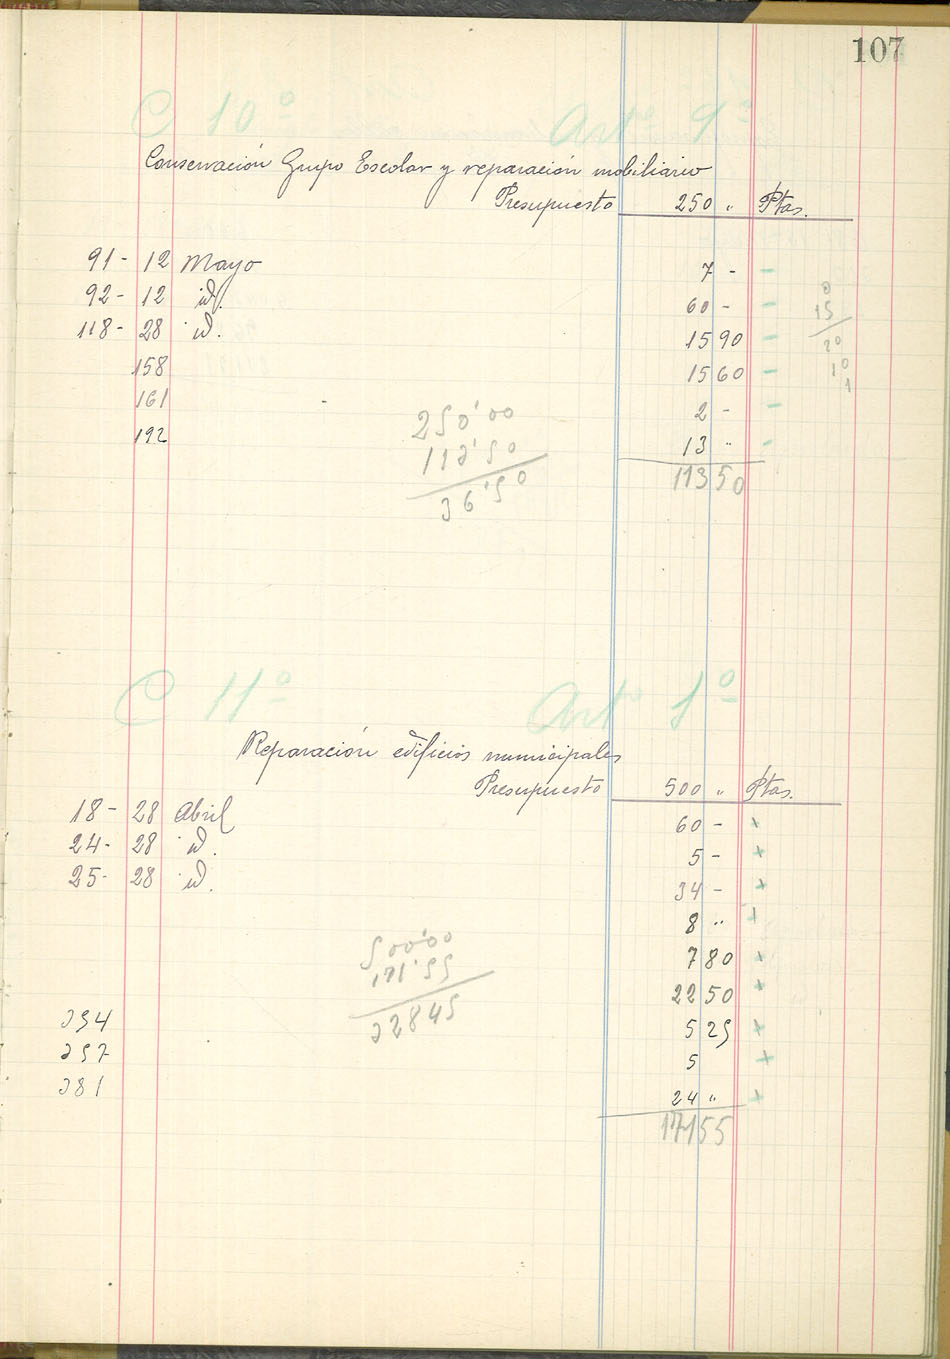 107
C 10º Artº 9º
Conservación Grupo Escolar y reparación mobiliario
Presupuesto 250 " Ptas.
91 - 12 Mayo 7 - -
92 - 12 id. 60 - -
118 - 28 id. 15 90 -
158 15 60 -
161 2 - -
192 13 " -
113 50
250'00
113'50
36'50
0
15
20
10
1
C 11º Artº 1º
Reparación edificios municipales
Presupuesto 500 " Ptas.
18 - 28 Abril 60 - +
24 - 28 id. 5 - +
25 - 28 id. 34 - +
8 " +
7 80 +
22 50 +
354 5 25 +
357 5 +
381 24 " +
171 55
500'00
171'55
328 45